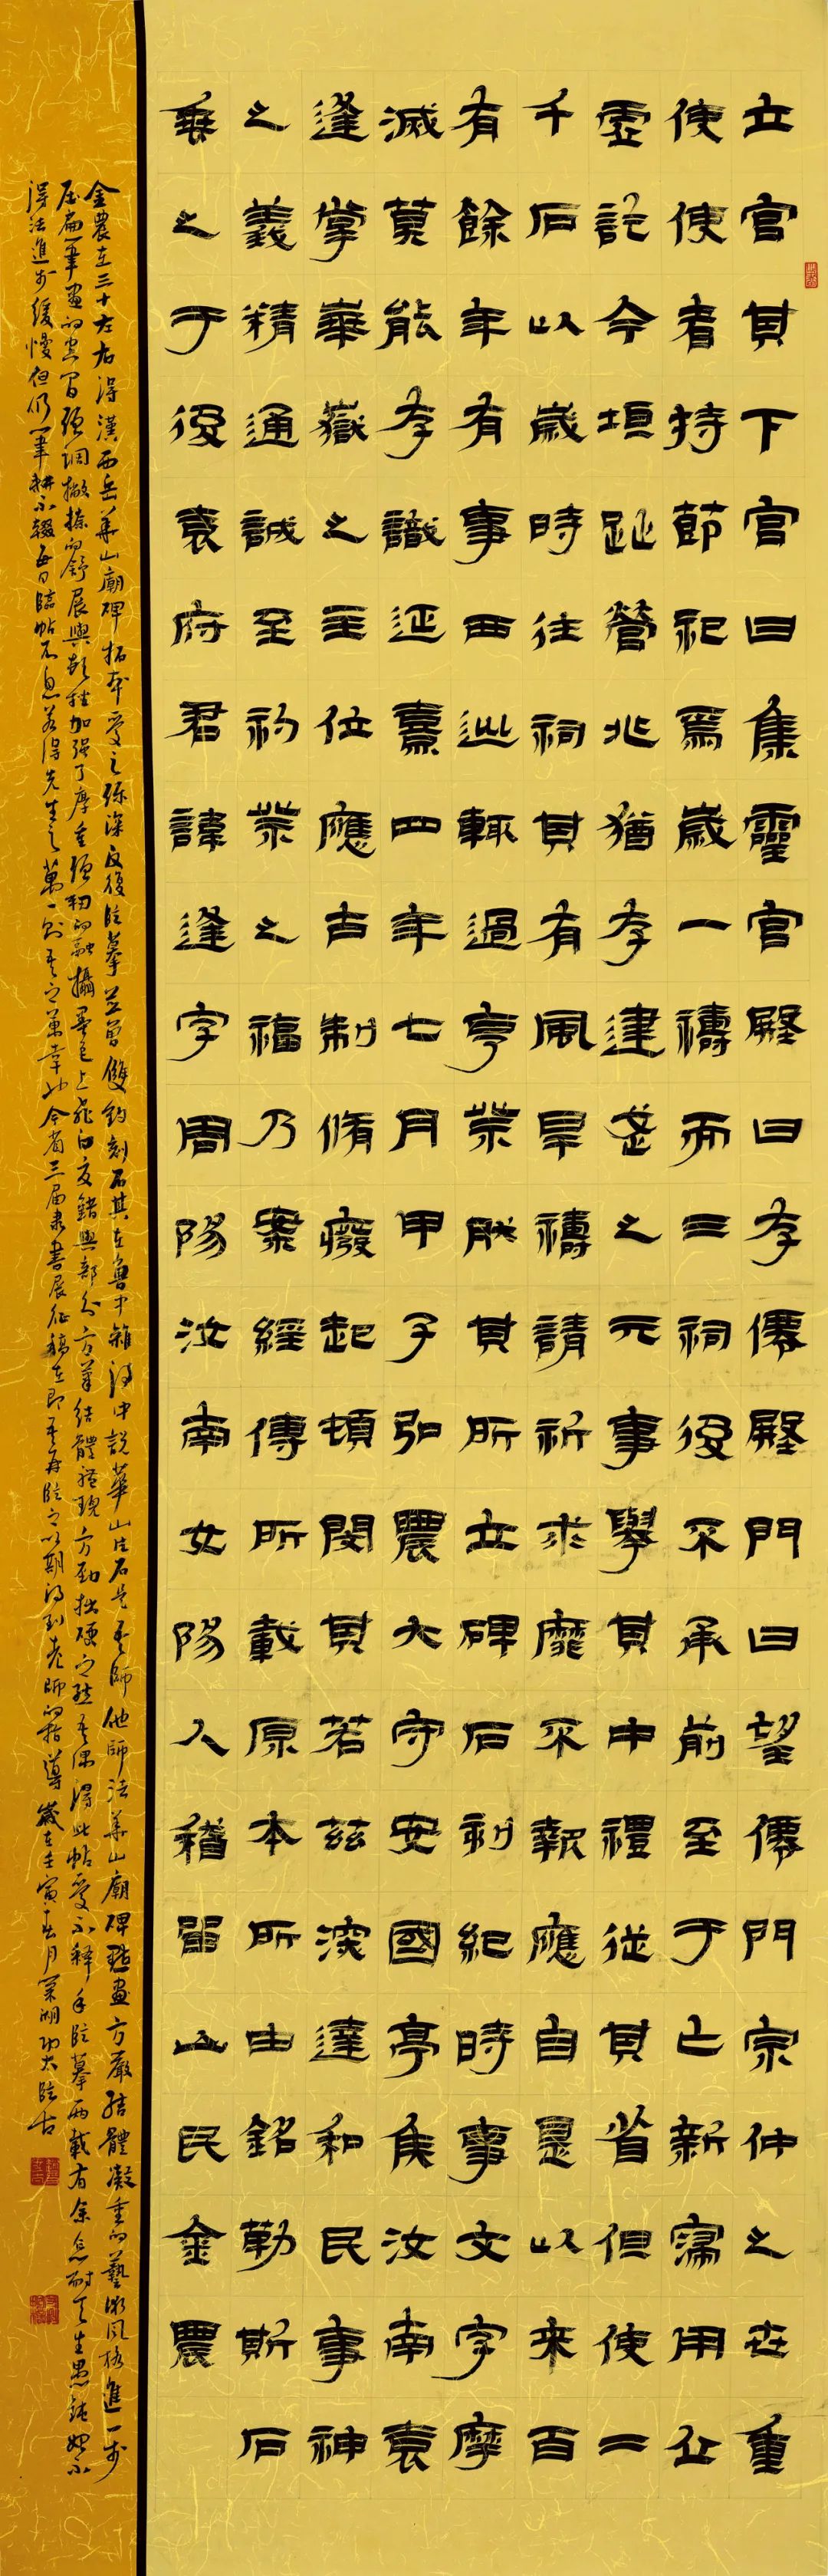 立官其下官曰集靈宮殿曰存僊殿門曰望僊門宗仲之世重
使使者持節祀焉歲一禱而三祠後不承前至于亡新寖用丘
虛訖今垣趾營兆猶存建武之元事舉其中禮從其省但使二
千石以歲時往祠其有風旱禱請祈求靡不報應自是以來百
有餘年有事西巡輒過亨祭然其所立碑石刻紀時事文字摩
滅莫能存識延熹四年七月甲子弘農太守安國亭侯汝南袁
逢掌華嶽之主位應古制脩廢起頓閔其若茲深達和民事神
之義精通誠至礿祭之福乃案經傳所載原本所由銘勒斯石
垂之于後袁府君諱逢字周陽汝南女陽人稽留山民金農
金農在三十左右得漢西岳華山廟碑拓本愛之彌深反復臨摹並曾雙鈎刻石其在魯中雜詩中說華山片石是吾師他師法華山廟碑點畫方嚴結體凝重的藝術風格進一步
压扁筆畫的空间強調撇捺的舒展與加强了厚重强韌的融攝墨色上飛白交錯與部分方筆結體體現方勁拙硬之態吾偶得此帖愛不釋手臨摹兩載有余怎耐天生愚鈍如不
得法進步緩慢但仍筆耕不輟每日臨帖不息若得先生之萬一則吾之萬幸也今省三届隶書展征稿在即吾再臨之以期得到老師的指導歲在壬寅春月 臨古